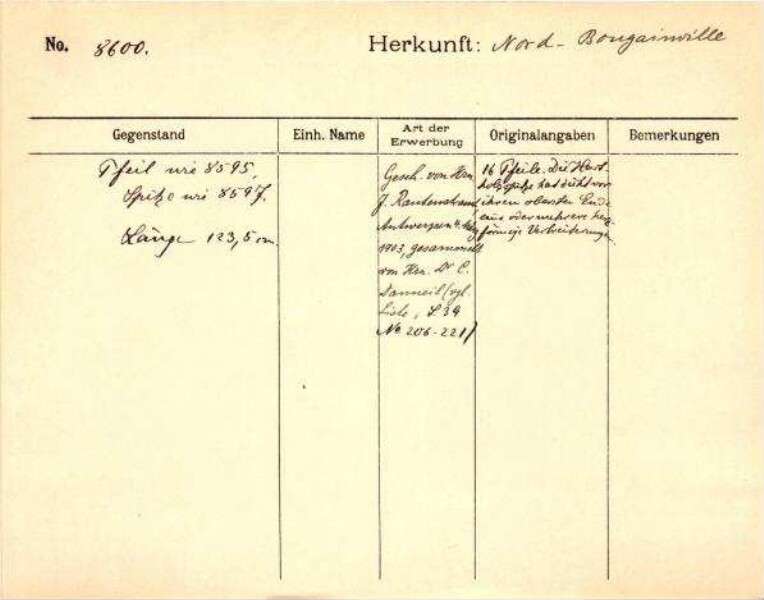 No. 8600.
Herkunft: Nord-Bougainville
Gegenstand
Einh. Name
Art der Erwerbung
Originalangaben
Bemerkungen
Pfeil wie 8595,
Spitze wie 8597.
Länge 123,5 cm
Gesch. von Hrn
J. Rautenstrauch,
Antwerpen 4.
1903, gesammelt
von Hrn. Dr C.
Danneil (vgl.
Liste, S. 34
No 206-221)
16 Pfeile. Die Hart-
holzspitze hat dicht vor
ihrem obersten Ende
eine oder mehrere
förmige Verbreiterungen